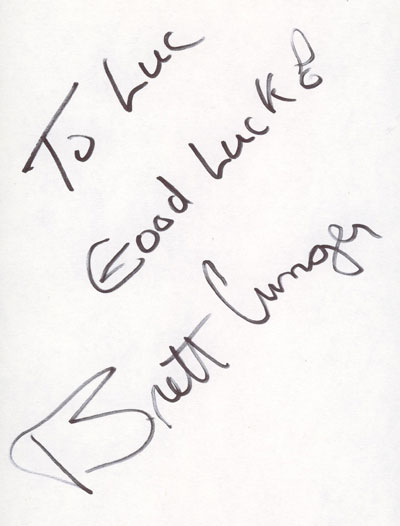 To Luc
Good Luck!
Brett